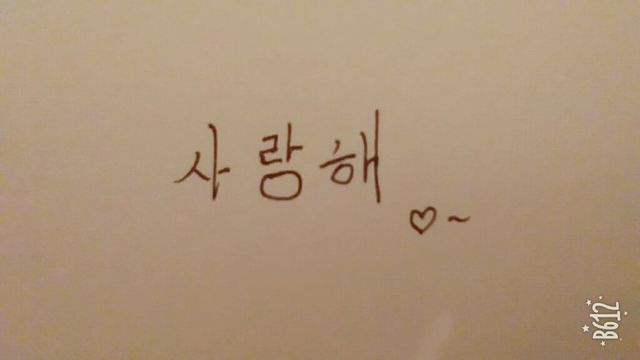 사랑해
♡~
B612